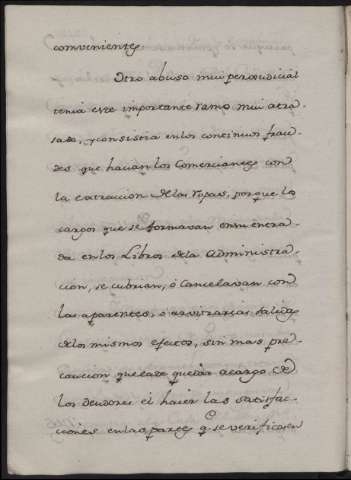 convenientes
Otro abuso mui perjudicial
tenia este importante ramo mui atra-
sado, y consistia en los continuos frau-
des que hacian los Comerciantes con
la extraccion de las ropas, porque los
cargos que se formavan en su entra-
da en los Libros de la Administra-
cion, se cubrian, ó cancelavan con
las aparentes, ó arvitrarias salidas
de los mismos efectos, sin mas pre-
caucion que la de quedar a cargo de
los Deudores el hacer las satisfac-
ciones en las partes q.e se verificasen